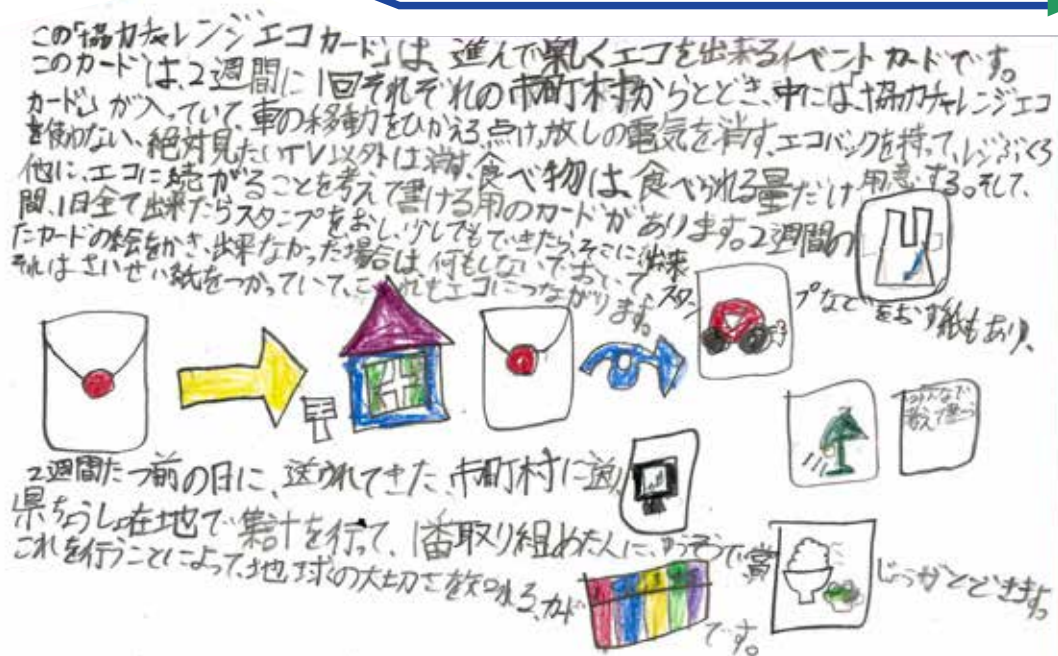 この「協力チャレンジエコカード」は、進んで楽しくエコを出来るイベントカードです。
このカードは、2週間に1回それぞれの市町村からとどき、中には、「協力チャレンジエコ
カード」が入っていて、車の移動をひかえる、点け放しの電気を消す、エコバックを持って、レジぶくろ
を使わない、絶対見たいTV以外は消す、食べ物は、食べられる量だけ用意する。そして、
他に、エコに繋がることを考えて書ける用のカードがあります。2週間の
間、1日全て出来たらスタンプをおし、少しでもできたら、そこに出来
たカードの絵をかき、出来なかった場合は、何もしないでおいて、スタンプなどをおす紙もあり、
それはさいせい紙をつかっていて、これもエコにつながります。
みんなで
考えて書こう
2週間たつ前の日に、送られてきた、市町村に送り
県ちょうしょ在地で集計を行って、1番取り組めた人に、ゆうそうで賞じょうがとどきます。
これを行うことによって、地球の大切さを知れる、カードです。